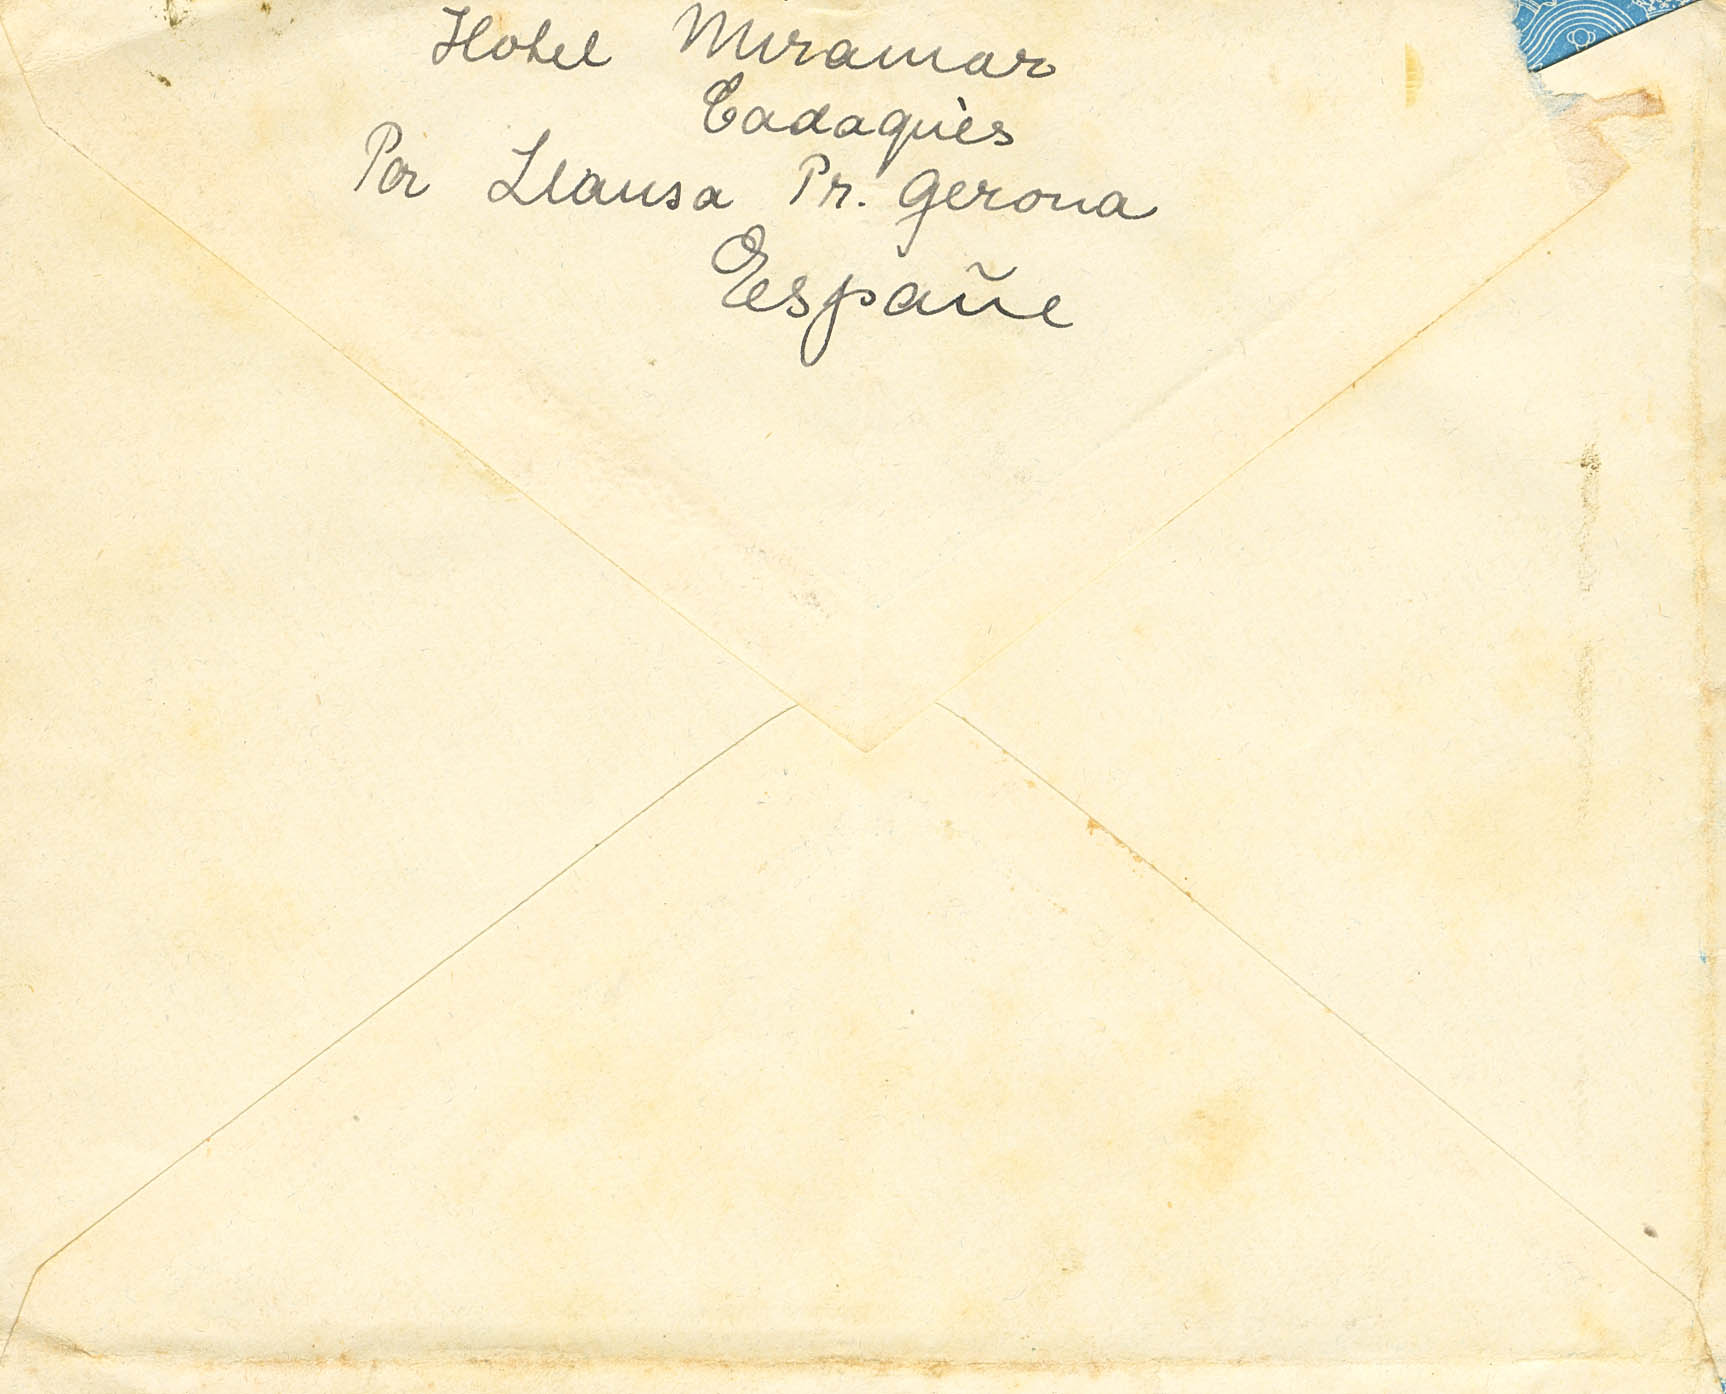 Hotel Miramar
Cadaquès
Por Llansa Pr. Gerona
Españe